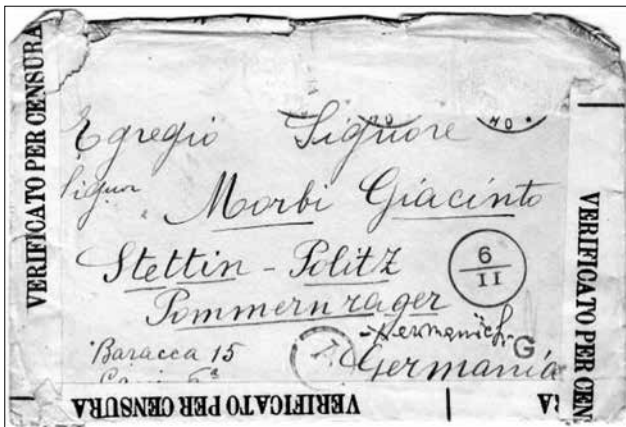 VERIFICATO PER CENSURA
Egregio Signore
Signor
Morbi Giacinto
Stettin - Politz
Pommernrager
6
II
G
Baracca 15
Germania
VERIFICATO PER CEN
VERIFICATO PER CENSURA